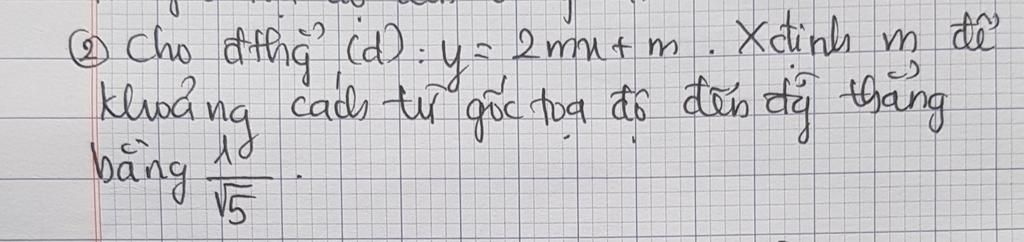 ② Cho đthg̉ (d): y = 2mx + m. Xđịnh m để
khoảng cách từ gốc toạ độ đến đg̃ thẳng
bằng 1/√5.